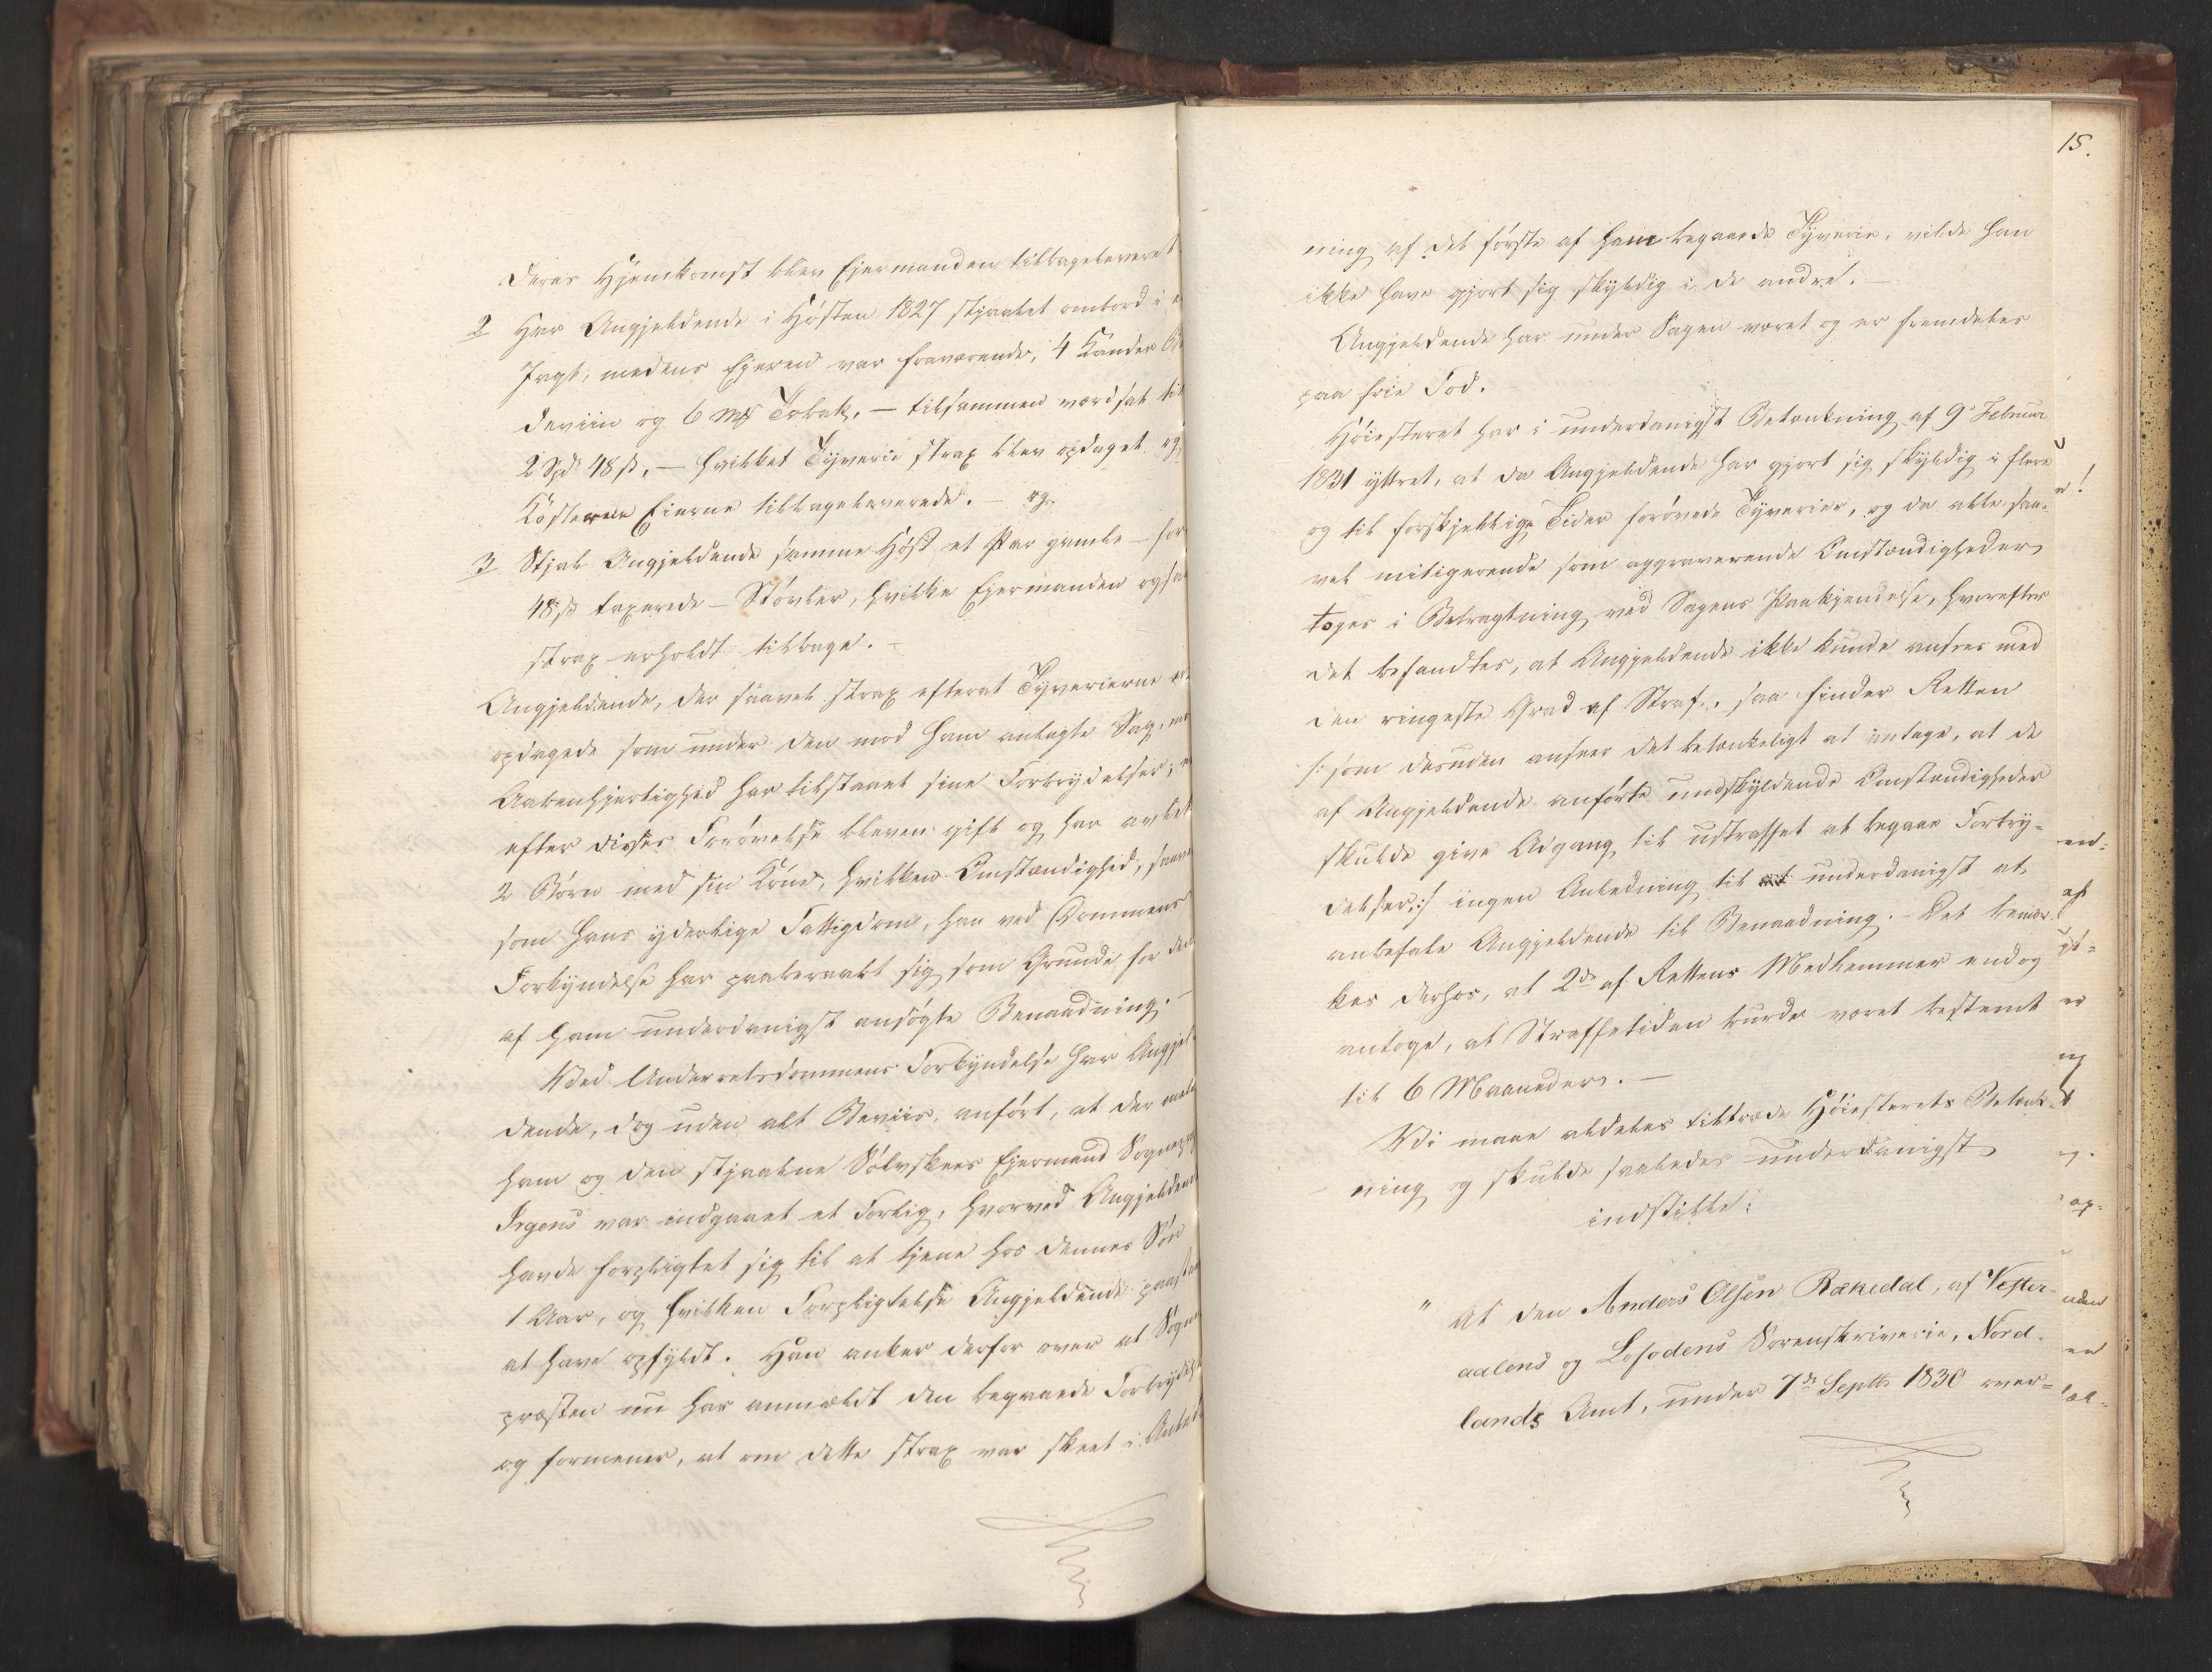 deres Hjemkomst blev Ejermanden tilbageleveret.
2 Har Angjeldende i Høsten 1827 stjaalet ombord i
Jagt, medens Ejeren var fraværende, 4 Kander
deviin og 6 Mk Tobak, — tilsammen værdsat til
2 Spd 48 ß, — hvilket Tyverie strax blev opdaget og
Kosterne Eierne tilbageleverede. — og
3 Stjal Angjeldende samme Høst et Par gamle — for
48 ß taxerede — Støvler, hvilke Ejermanden ogsaa
strax erholdt tilbage. —
Angjeldende, der saavel strax efterat Tyverierne
opdagede som under den mod ham anlagte Sag, med
Aabenhjertighed har tilstaaet sine Forbrydelser, er
efter disses Forøvelse bleven gift og har avlet
2 Børn med sin Kone, hvilken Omstændighed, saavel
som hans yderlige Fattigdom, han ved Dommens
Forkyndelse har paaberaabt sig som Grunde for den
af ham underdanigst ansøgte Benaadning. —
Ved Underretsdommens Forkyndelse har Angjel-
dende, dog uden alt Beviis, anført, at der mellem
ham og den stjaalne Sølvskees Ejermand Sognepr
Irgens var indgaaet et Forlig, hvorved Angjeldende
havde forpligtet sig til at tjene hos dennes Søn
1 Aar, og hvilken Forpligtelse Angjeldende paastaaer
at have opfyldt. Han anker derfor over at Sogne
præsten nu har anmeldt den begaaede Forbrydelse
og formener, at om dette strax var skeet i Anled
15.
ning af det første af ham begaaede Tyverie, vilde han
ikke have gjort sig skyldig i de andre. —
Angjeldende har under Sagen været og er fremdeles
paa frie Fod.
Høiesteret har i underdanigst Betænkning af 9de Februar
1831 yttret, at da Angjeldende har gjort sig skyldig i flere
og til forskjellige Tider forøvede Tyverier, og da alle saa-
vel mitigerende som aggraverende Omstændigheder
toges i Betragtning ved Sagens Paakjendelse, hvorefter
det befandtes, at Angjeldende ikke kunde ansees med
den ringeste Grad af Straf, saa finder Retten
/: som desuden anseer det betænkeligt at antage, at de
af Angjeldende anførte undskyldende Omstændigheder
skulde give Adgang til ustraffet at begaae Forbry-
delser, :/ ingen Anledning til underdanigst at
anbefale Angjeldende til Benaadning. — Det bemær-
kes derhos, at 2de af Rettens Medlemmer endog
antoge, at Straffetiden burde været bestemt
til 6 Maaneder. —
Vi maae aldeles tiltræde Høiesterets Betænk-
ning og skulde saaledes underdanigst
indstille:
" At den Anders Olsen Rækedal, af Vester-
aalens og Lofodens Sorenskriverie, Nord-
lands Amt, under 7de Septbr 1830 over-